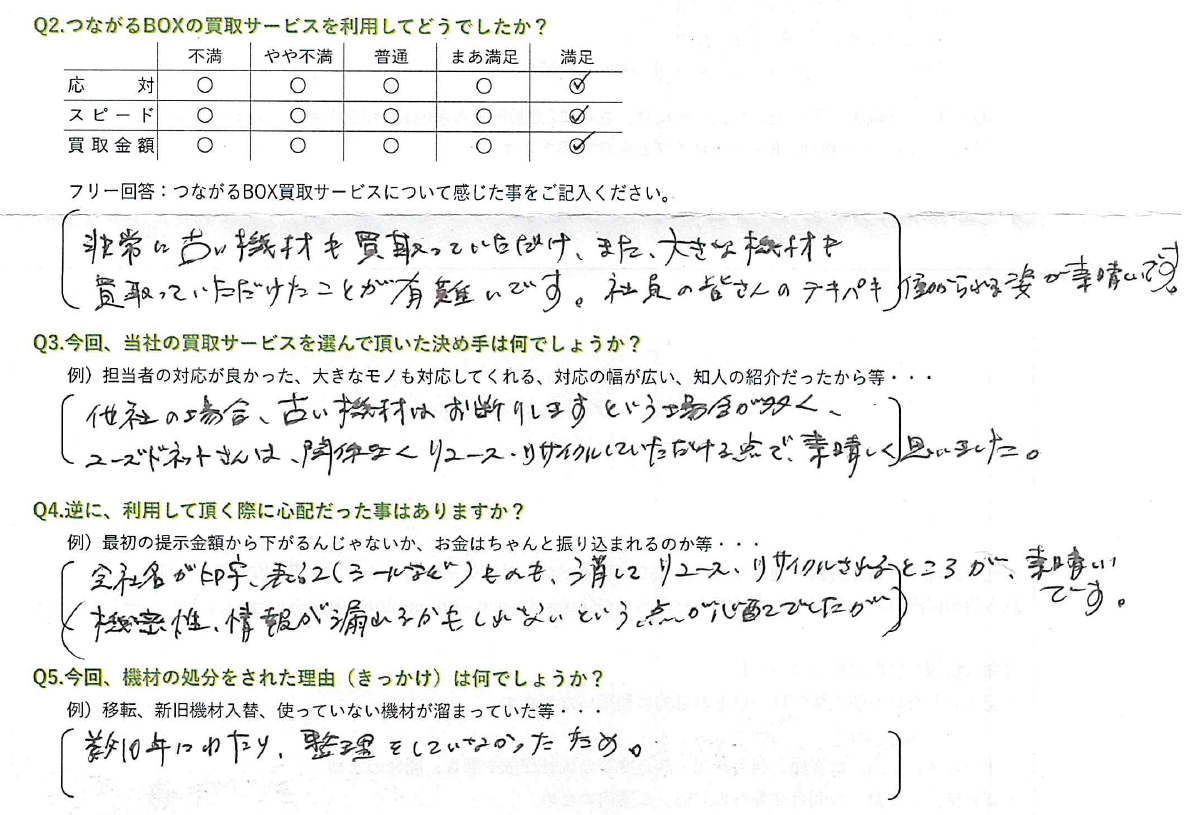 Q2.つながるBOXの買取サービスを利用してどうでしたか？
不満 やや不満 普通 まあ満足 満足
応対 ○ ○ ○ ○ ✓
スピード ○ ○ ○ ○ ✓
買取金額 ○ ○ ○ ○ ✓
フリー回答：つながるBOX買取サービスについて感じた事をご記入ください。
非常に古い機材も買取っていただけ、また、大きな機材も
買取っていただけたことが有難いです。社員の皆さんのテキパキ働かられる姿が素晴いです。
Q3.今回、当社の買取サービスを選んで頂いた決め手は何でしょうか？
例）担当者の対応が良かった、大きなモノも対応してくれる、対応の幅が広い、知人の紹介だったから等・・・
他社の場合、古い機材はお断りしますという場合が多く、
ユーズドネットさんは、関係なくリユース・リサイクルしていただける点で、素晴しく思いました。
Q4.逆に、利用して頂く際に心配だった事はありますか？
例）最初の提示金額から下がるんじゃないか、お金はちゃんと振り込まれるのか等・・・
会社名が印字、表示(シールなど)ものも、消してリユース、リサイクルされるところが、素晴いです。
機密性、情報が漏れるかもしれないという点が心配でしたが
Q5.今回、機材の処分をされた理由（きっかけ）は何でしょうか？
例）移転、新旧機材入替、使っていない機材が溜まっていた等・・・
数10年にわたり、整理をしていなかったため。